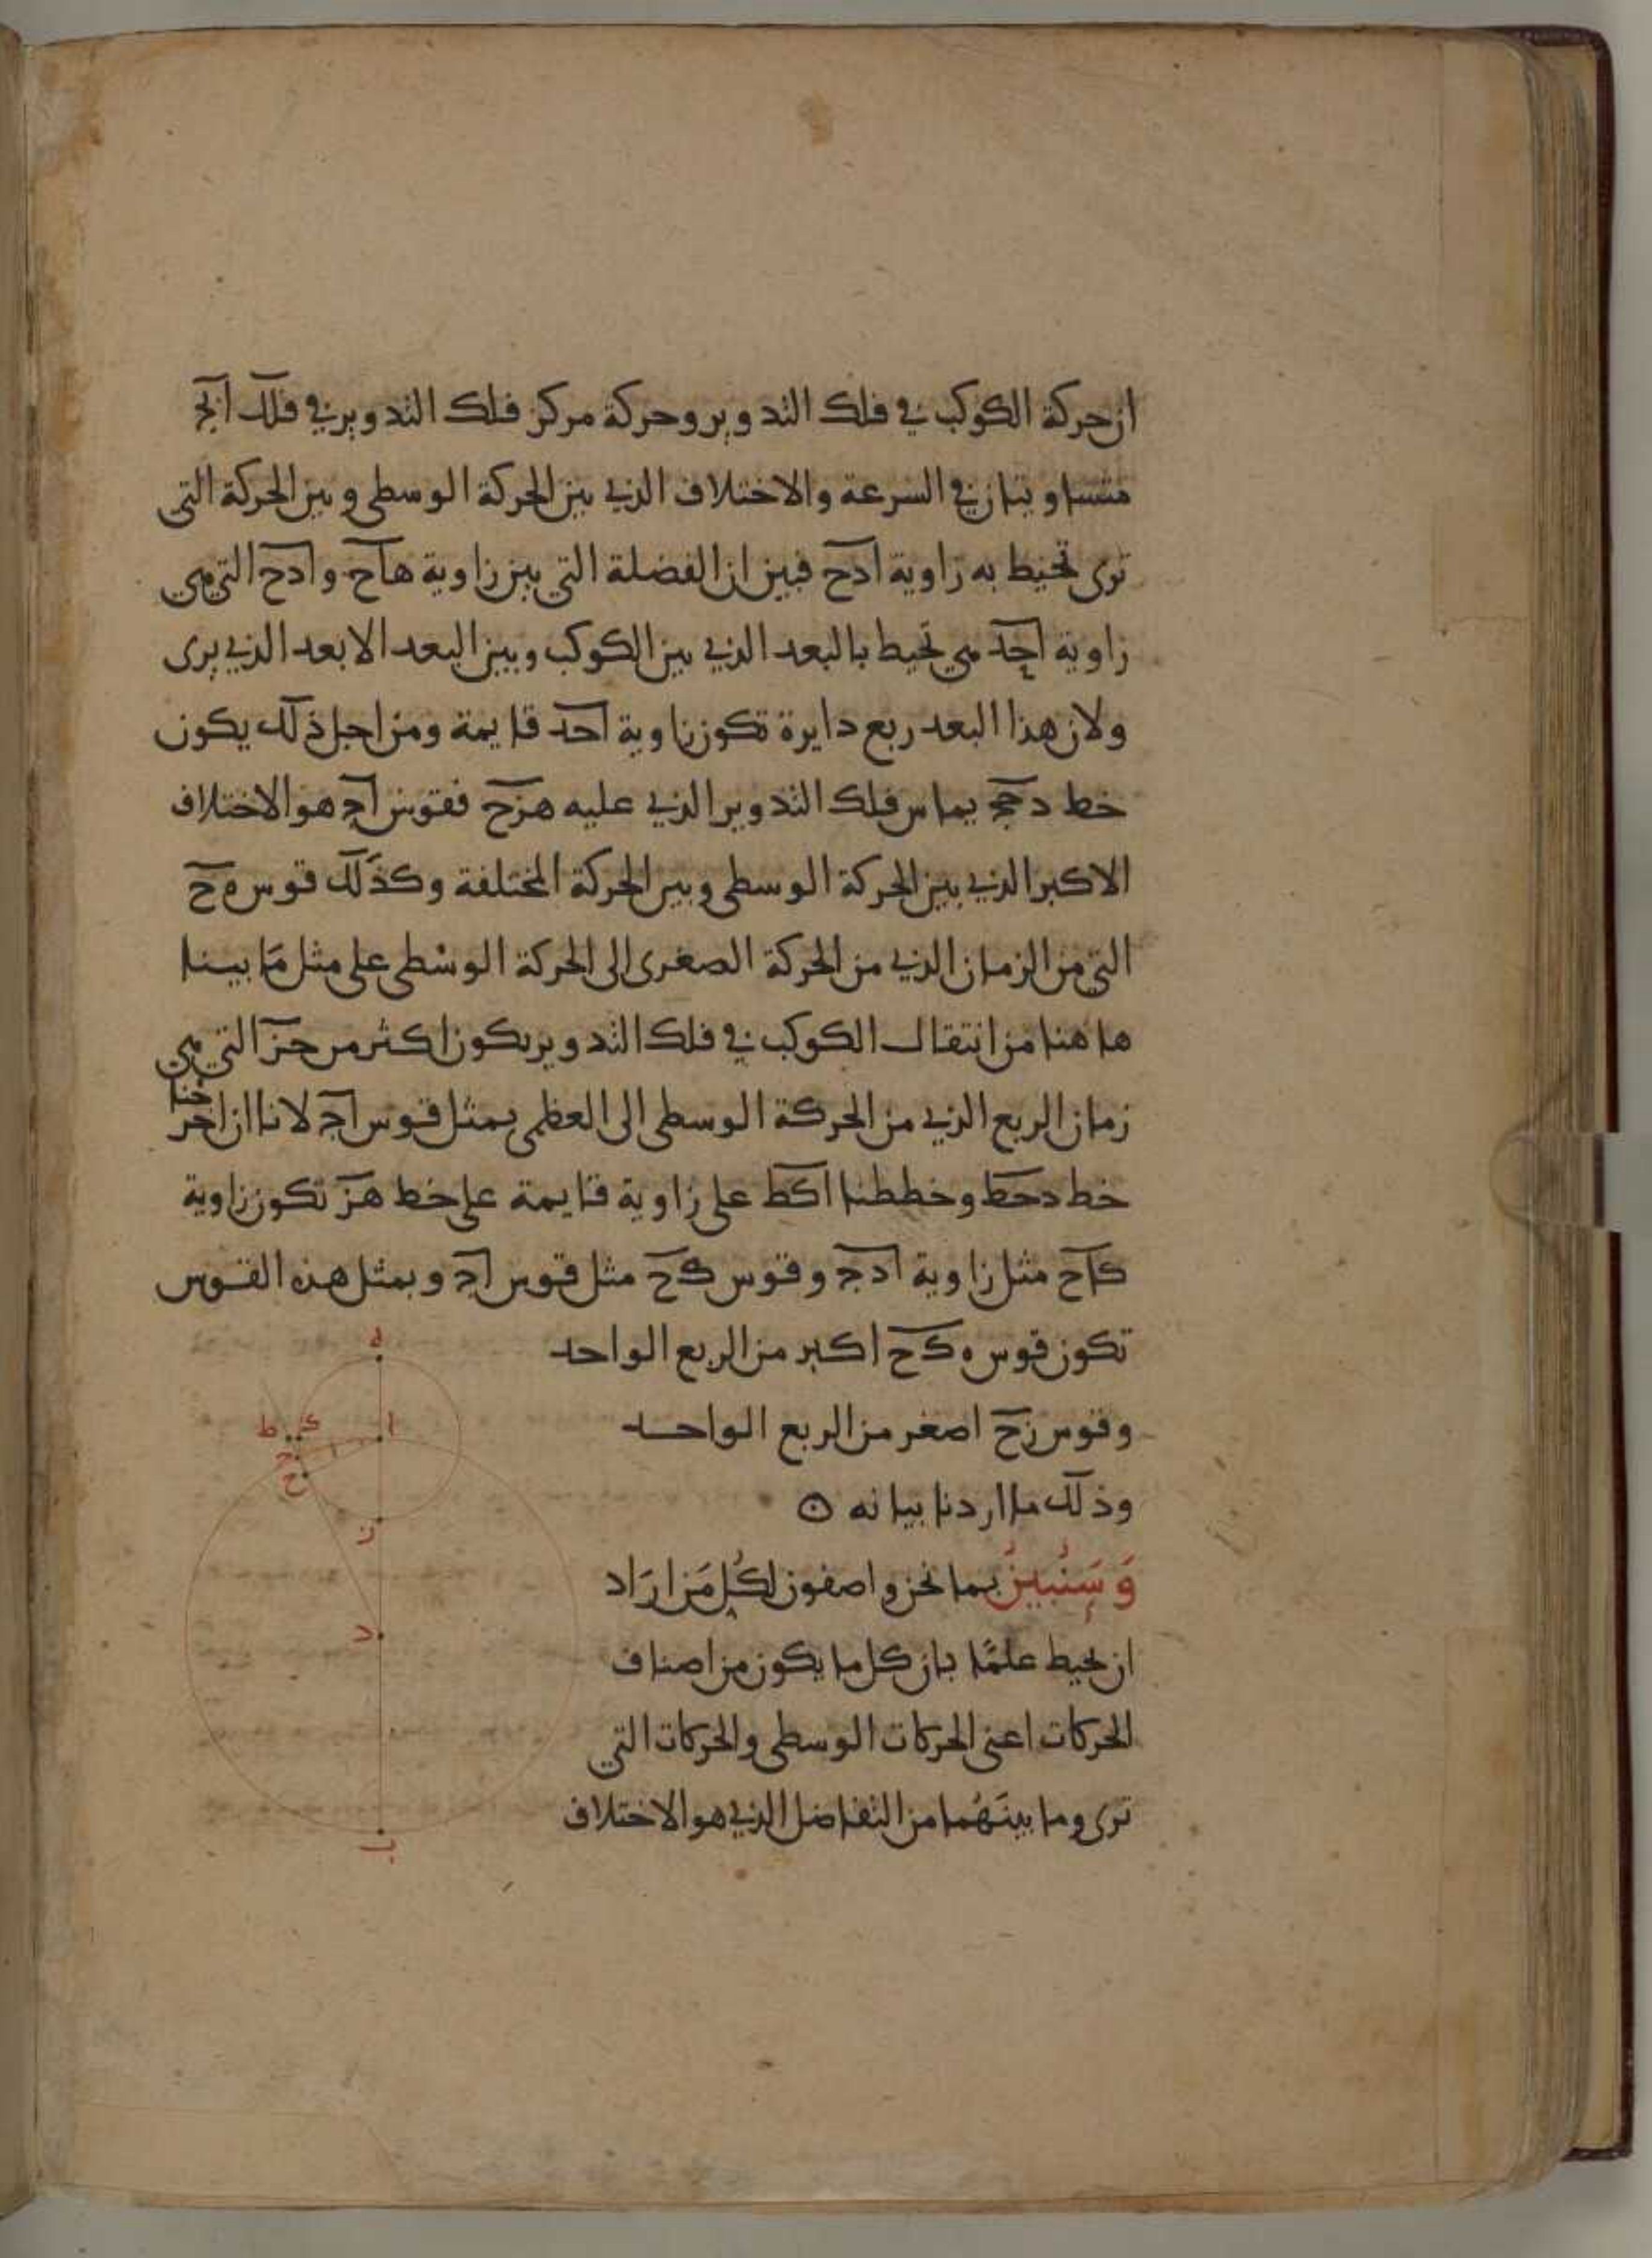 ان حركة الكوكب في فلك التدوير وحركة مركز فلك التدوير في فلك ابج
متساويتان في السرعة والاختلاف الذي بين الحركة الوسطى وبين الحركة التي
ترى تحيط به زاوية ادح فبين ان الفضلة التي بين زاوية هاح وادح التي هي
زاوية احد هي تحيط بالبعد الذي بين الكوكب وبين البعد الابعد الذي يرى
ولان هذا البعد ربع دايرة تكون زاوية احد قايمة ومن اجل ذلك يكون
خط دحج يماس فلك التدوير الذي عليه هزح فقوس اج هو الاختلاف
الاكبر الذي بين الحركة الوسطى وبين الحركة المختلفة وكذلك قوس ه ح
التي من الزمان الذي من الحركة الصغرى الى الحركة الوسْطى على مثل مَا بينا
هاهنا من انتقال الكوكب في فلك التدوير يكون اكثر من حز التي هي
زمان الربع الذي من الحركة الوسطى الى العظمى بمثل قوس اج لانا ان اخرجنا
خط دحط وخططنا اكط على زاوية قايمة على خط هز تكون زاوية
كاح مثل زاوية ادج وقوس كح مثل قوس اج وبمثل هذه القوس
تكون قوس ه كح اكبر من الربع الواحد
وقوس زح اصغر من الربع الواحد
وذلك ما اردنا بيانه ⊙
وَسَنُبين بما نحن واصفون لكُل مَن ارَاد
ان يحيط علمًا بان كل ما يكون من اصناف
الحركات اعني الحركات الوسطى والحركات التي
ترى وما بينَهُما من التفاضل الذي هو الاختلاف
ه
ا
ك
ط
ج
ح
ز
د
ب